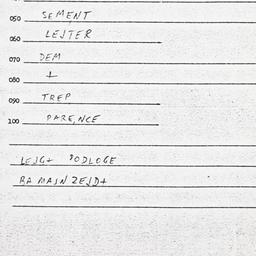 050 SEMENT
060 LEJTER
070 DEM
080 I
090 TREP
100 PARE,NCE
LEJG+ PODLOGE
RA MAJN ZEJD+